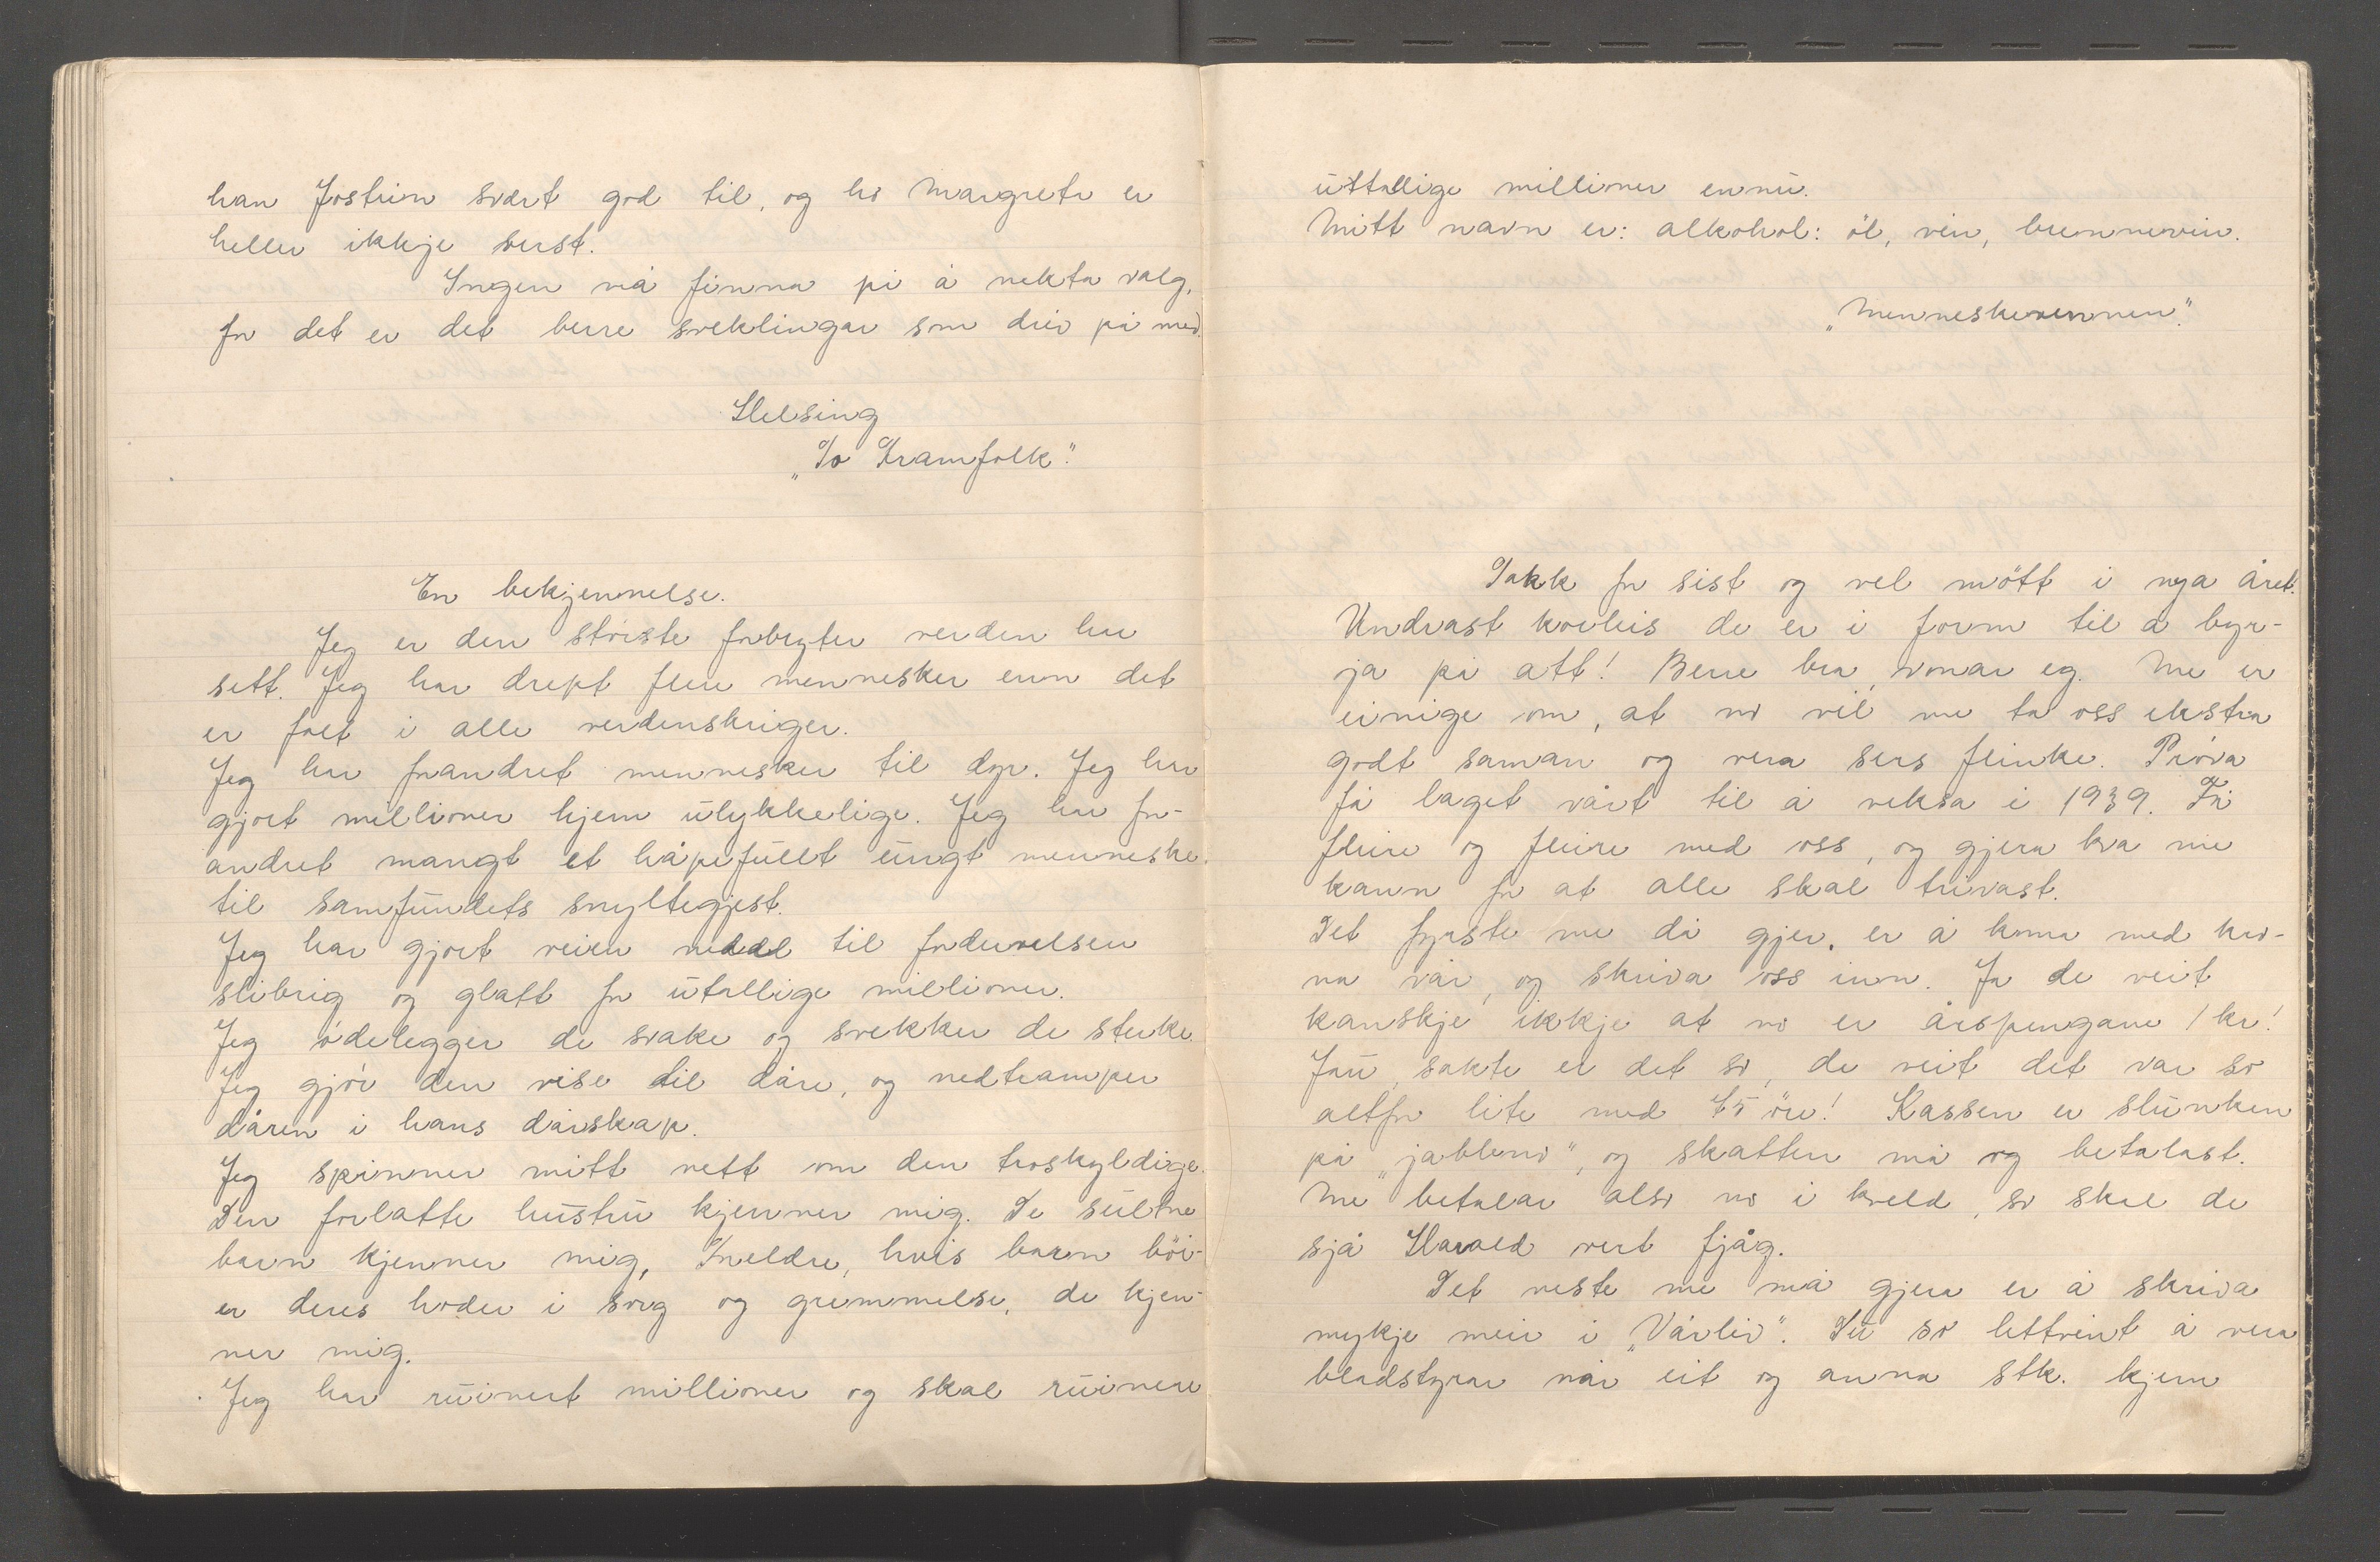 han Jostein svært god til, og ho Margrete er
heller ikkje verst.
Ingen må finna på å nekta valg,
for det er det berre sveklingar som driv på med.
Helsing
"To Framfolk".
En bekjennelse.
Jeg er den störste forbryter verden har
sett. Jeg har drept flere mennesker enn det
er falt i alle verdenskriger.
Jeg har forandret mennesker til dyr. Jeg har
gjort millioner hjem ulykkelige. Jeg har for-
andret mangt et håpefullt ungt menneske
til samfundets snyltegjest.
Jeg har gjort veien nedd til fordervelsen
slibrig og glatt for utallige millioner.
Jeg ödelegger de svake og svekker de sterke.
Jeg gjör den vise til dåre, og nedtramper
dåren i hans dårskap.
Jeg spinner mitt nett om den troskyldige.
Den forlatte hustru kjenner mig. De sultne
barn kjenner mig, Foreldre, hvis barn böi-
er deres hoder i sorg og gremmelse, de kjen-
ner mig.
Jeg har ruinert millioner og skal ruinere
uttallige millioner ennu.
Mitt navn er: alkohol: öl, vin, brennevin.
"Menneskevennen".
Takk for sist og vel mött i nya året.
Undrast korleis de er i form til å byr-
ja på att! Berre bra, vonar eg. Me er
einige om, at no vil me ta oss ekstra
godt saman og vera sers flinke. Pröva
få laget vårt til å veksa i 1939. Få
fleire og fleire med oss, og gjera kva me
kann for at alle skal trivast.
Det fyrste me då gjer, er å koma med kro-
na vår, og skriva oss inn. Ja de veit
kanskje ikkje at no er årspengane 1 kr!
Jau, sakte er det so, de veit det var so
altfor lite med 75 öre! Kassen er slunken
på "jableno", og skatten må og betalast.
Me betalar also no i kveld, so skal de
sjå Harald vert fjåg.
Det neste me må gjera er å skriva
mykje meir i "Vårliv". Du so lettvint å vera
bladstyrar når eit og anna stk. kjem